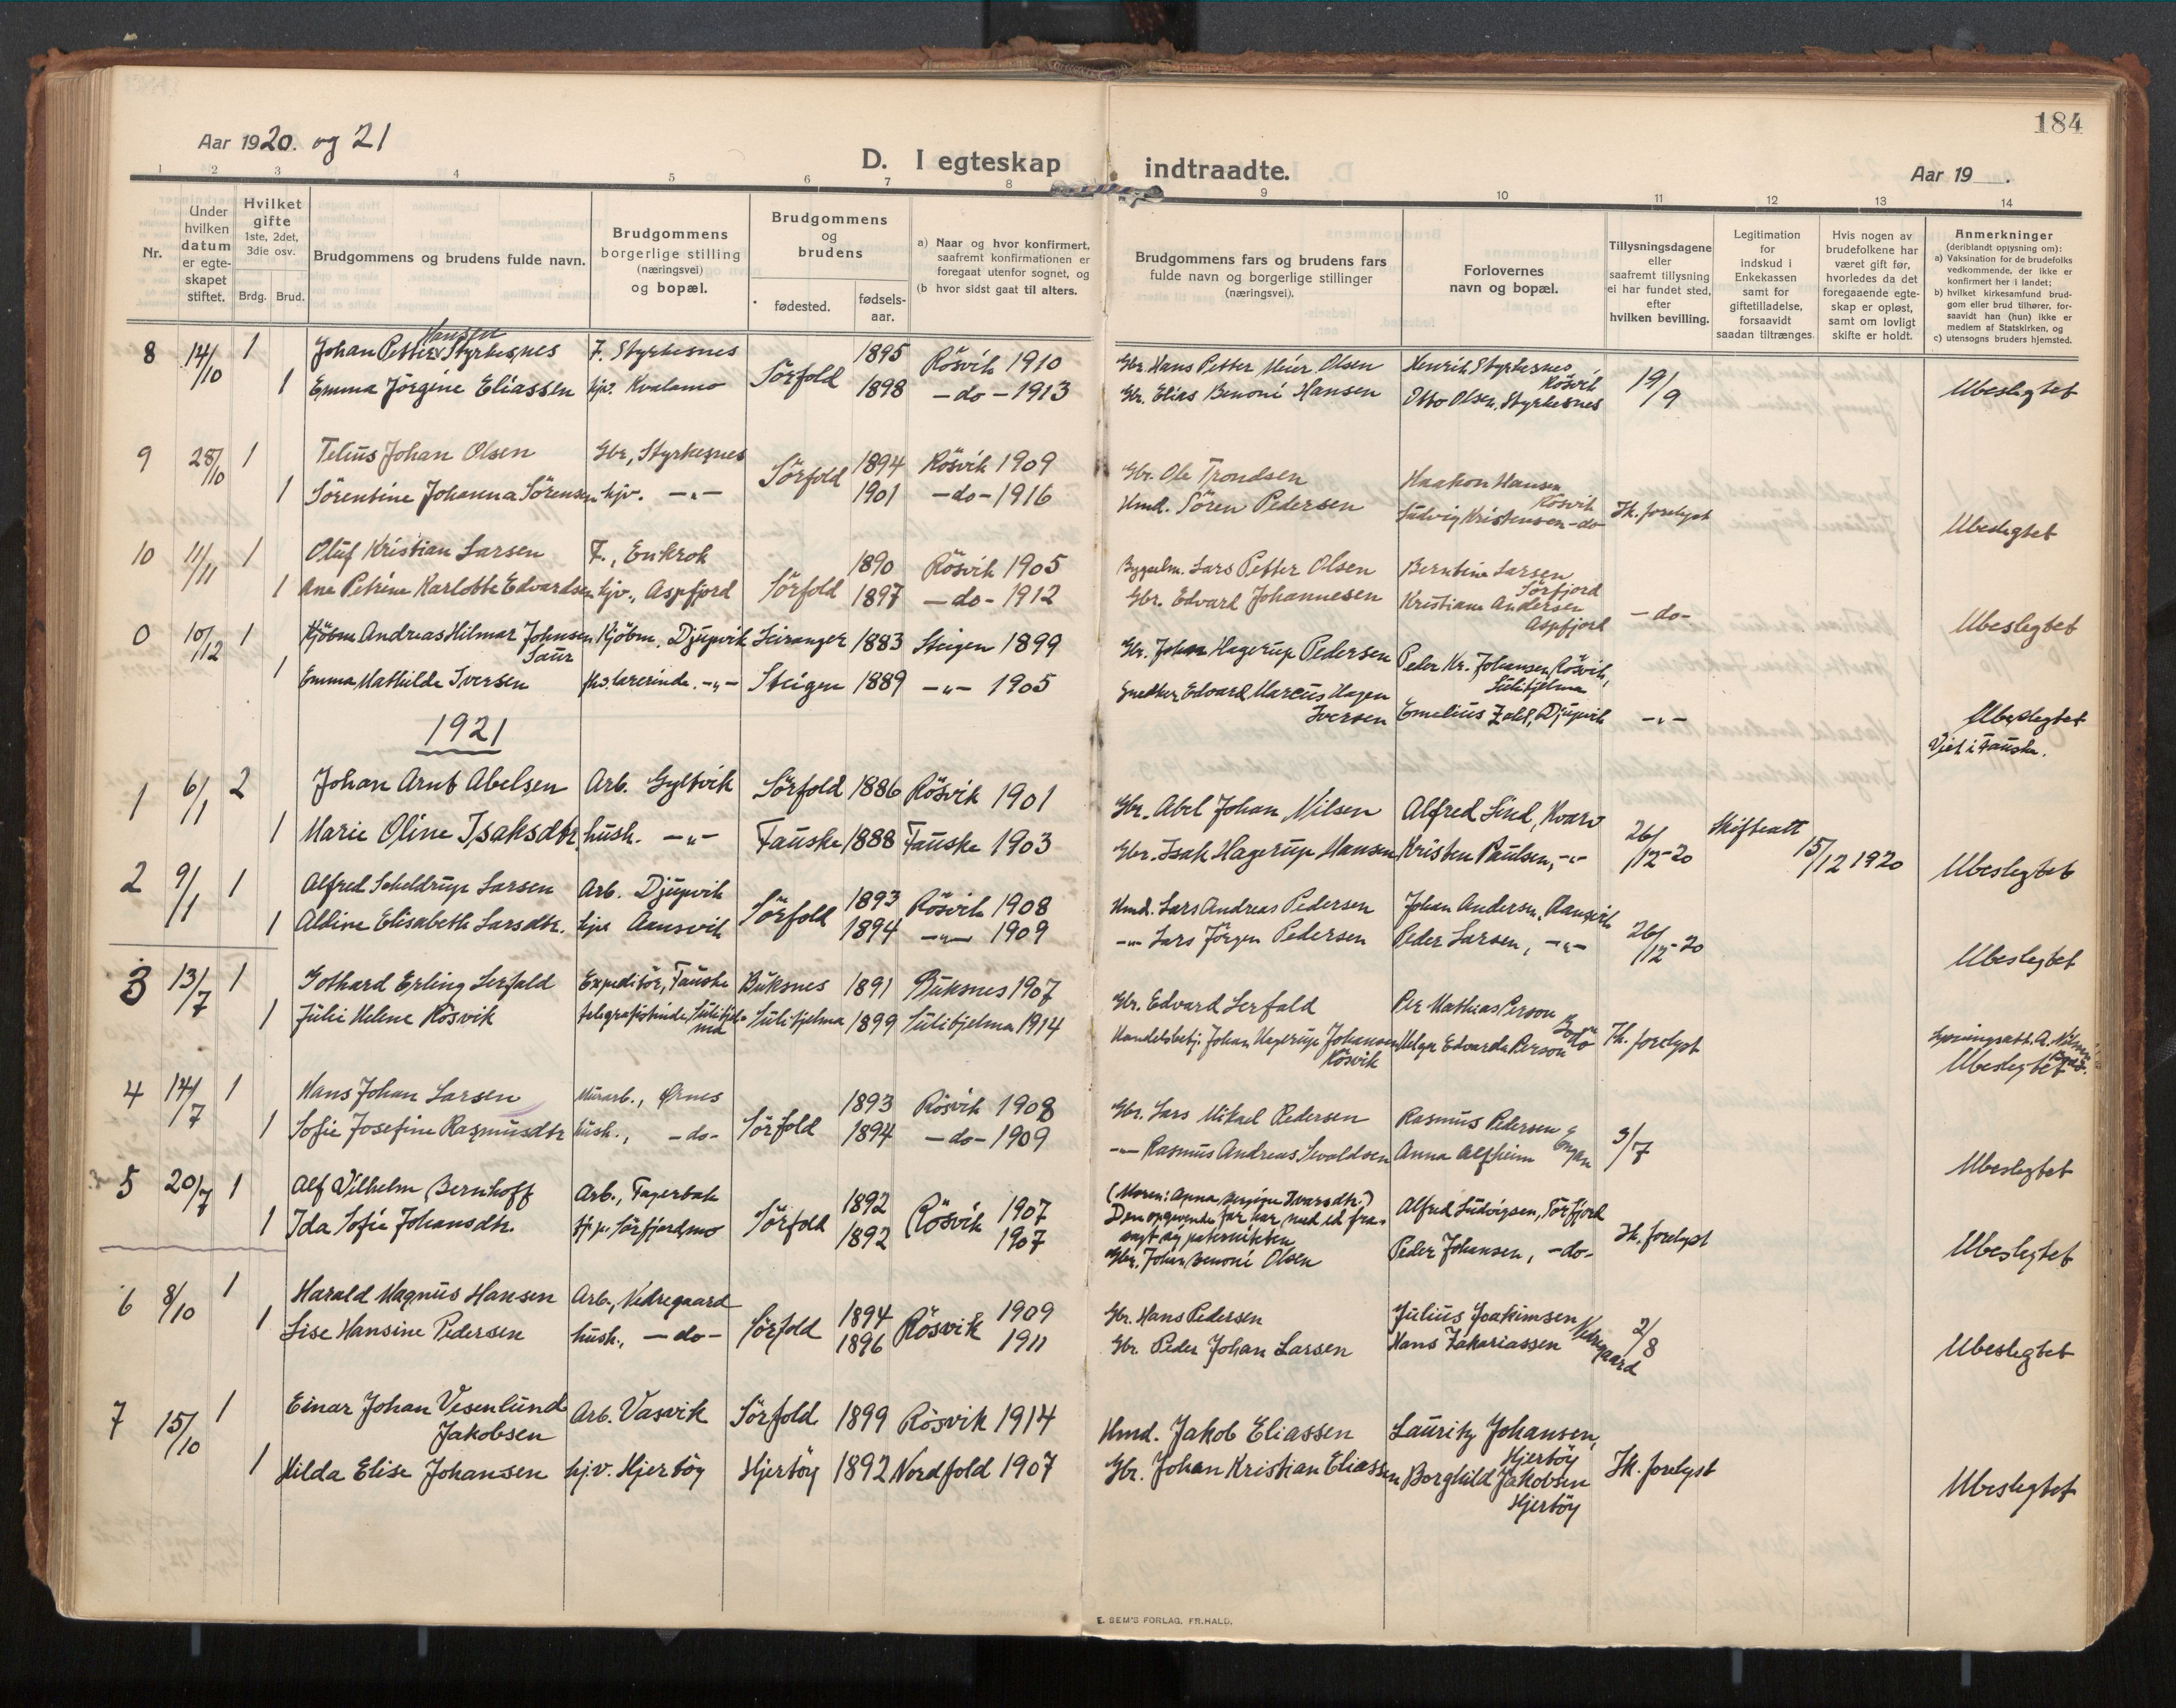 184
Aar 1920. og 21
D. I egteskap indtraadte.
Aar 19 .
1 2 3 4 5 6 7 8 9 10 11 12 13 14
Nr.
Under hvilken datum er egte-skapet stiftet.
Hvilket gifte
1ste, 2det, 3die osv.
Brdg. Brud.
Brudgommens og brudens fulde navn.
Brudgommens borgerlige stilling (næringsvei) og bopæl.
Brudgommens og brudens
fødested.
fødsels-aar.
a) Naar og hvor konfirmert, saafremt konfirmationen er foregaat utenfor sognet, og
(b hvor sidst gaat til alters.
Brudgommens fars og brudens fars fulde navn og borgerlige stillinger (næringsvei).
Forlovernes navn og bopæl.
Tillysningsdagene eller saafremt tillysning ei har fundet sted, efter hvilken bevilling.
Legitimation for indskud i Enkekassen samt for giftetilladelse, forsaavidt saadan tiltrænges.
Hvis nogen av brudefolkene har været gift før, hvorledes da det foregaaende egte-skap er opløst, samt om lovligt skifte er holdt.
Anmerkninger
(deriblandt opjysning om):
a) Vaksination for de brudefolks vedkommende, der ikke er konfirmert her i landet;
b) hvilket kirkesamfund brud-gom eller brud tilhører, for-saavidt han (hun) ikke er medlem af Statskirken, og
c) utensogns bruders hjemsted.
Hansen
8 14/10 1 Johan Petter Styrkesnes F. Styrkesnes Sörfold 1895 Rösvik 1910 Gbr. Hans Petter Meier Olsen Henrik Styrkesnes, Rösvik 19/9
1 Emma Jörgine Eliassen hjv. Kvalamo 1898 -do- 1913 Gbr. Elias Benoni Hansen Otto Olsen, Styrkesnes Ubeslegtet
9 28/10 1 Telius Johan Olsen Gbr, Styrkesnes Sörfold 1894 Rösvik 1909 Gbr. Ole Trondsen Haakon Hansen Rösvik
1 Sörentine Johanna Sörensen hjv. -"- 1901 -do- 1916 Hmd. Sören Pedersen Ludvig Kristensen -do- Ik. forelyst Ubeslegtet
10 11/11 1 Oluf Kristian Larsen F., Enkrok Sörfold 1890 Rösvik 1905 Lars Petter Olsen Berntine Larsen Sörfjord
1 Ane Petrine Karlotte Edvardsen hjv., Aspfjord 1897 -do- 1912 Gbr. Edvard Johannesen Kristiane Andersen Aspfjord -do- Ubeslegtet
0 10/12 1 Kjöbm Andreas Hilmar Johnsen Saur Kjöbm. Djupvik Leiranger 1883 Steigen 1899 Gbr. Johan Hagerup Pedersen Peder Kr. Johansen, Rösvik, Sulitjelma
1 Emma Mathilde Iversen lærerinde. -"- Steigen 1889 -"- 1905 Snedker Edvard Marcus Hagen Iversen Emelius Zahl, Djupvik -"- Ubeslegtet
Viet i Fauske.
1921
1 6/1 2 Johan Arnt Abelsen Arb. Gyltvik Sörfold 1886 Rösvik 1901 Gbr. Abel Johan Nilsen Alfred Lind, Kvarv 26/12-20 Skifteatt 15/12 1920
1 Marie Oline Isaksdtr. hush. -"- Fauske 1888 Fauske 1903 Gbr. Isak Hagerup Hansen Kristen Paulsen, -"- Ubeslegtet
2 9/1 1 Alfred Scheldrup Larsen Arb. Djupvik Sörfold 1893 Rösvik 1908 Hmd. Lars Andreas Pedersen Johan Andersen, Aansvik
1 Aldine Elisabeth Larsdtr. hjv. Aansvik 1894 -"- 1909 -"- Lars Jörgen Pedersen Peder Larsen, -"- 26/12-20 Ubeslegtet
3 13/7 1 Gothard Erling Lerfald Expeditör, Fauske Buksnes 1891 Buksnes 1907 Gbr. Edvard Lerfald Per Mathias Person Bodö
1 Julie Helene Rösvik telegrafistinde, Sulitjelma Sulitjelma 1899 Sulitjelma 1914 Handelsbetj. Johan Hagerup Johansen Rösvik Helga Edvarda Person Ik. forelyst Lysningsatt. A. Nilsen
Ubeslegtet
4 14/7 1 Hans Johan Larsen Murarb., Ørnes Sörfold 1893 Rösvik 1908 Gbr. Lars Mikael Pedersen Rasmus Pedersen Engan 3/7
1 Sofie Josefine Rasmusdtr hush., -do- 1894 -do- 1909 -"- Rasmus Andreas Sevaldsen Anna Alfheim Ubeslegtet
5 20/7 1 Alf Vilhelm Bernhoff Arb., Fagerbak Sörfold 1892 Rösvik 1907 (Moren: Anna Ivarsdtr.) Den opgivende far har med ed fra-sagt sig paterniteten Alfred Ludvigsen, Sörfjord
1 Ida Sofie Johansdtr. Sörfjordmo 1892 1907 Gbr. Johan Benoni Olsen Peder Johansen, -do- Ik. forelyst Ubeslegtet
6 8/10 1 Harald Magnus Hansen Arb., Nedregaard Sörfold 1894 Rösvik 1909 Gbr. Hans Pedersen Julius Joakimsen Nedregaard 2/8
1 Lise Hansine Pedersen hush., -do- 1896 1911 Gbr. Peder Johan Larsen Hans Zakariassen Ubeslegtet
7 15/10 1 Einar Johan Vesenlund Jakobsen Arb. Vasvik Sörfold 1899 Rösvik 1914 Hmd. Jakob Eliassen Lauritz Johansen, Hjertöy
1 Hilda Elise Johansen hj.v. Hjertöy Hjertöy 1892 Nordfold 1907 Gbr. Johan Kristian Eliassen Borghild Jakobsen Hjertöy Ik. forelyst Ubeslegtet
E. SEM'S FORLAG. FR. HALD.